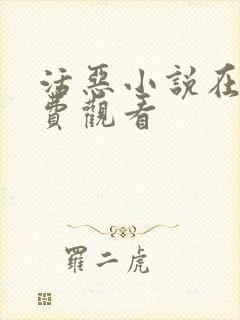 活惡小說在
費觀看
羅二虎